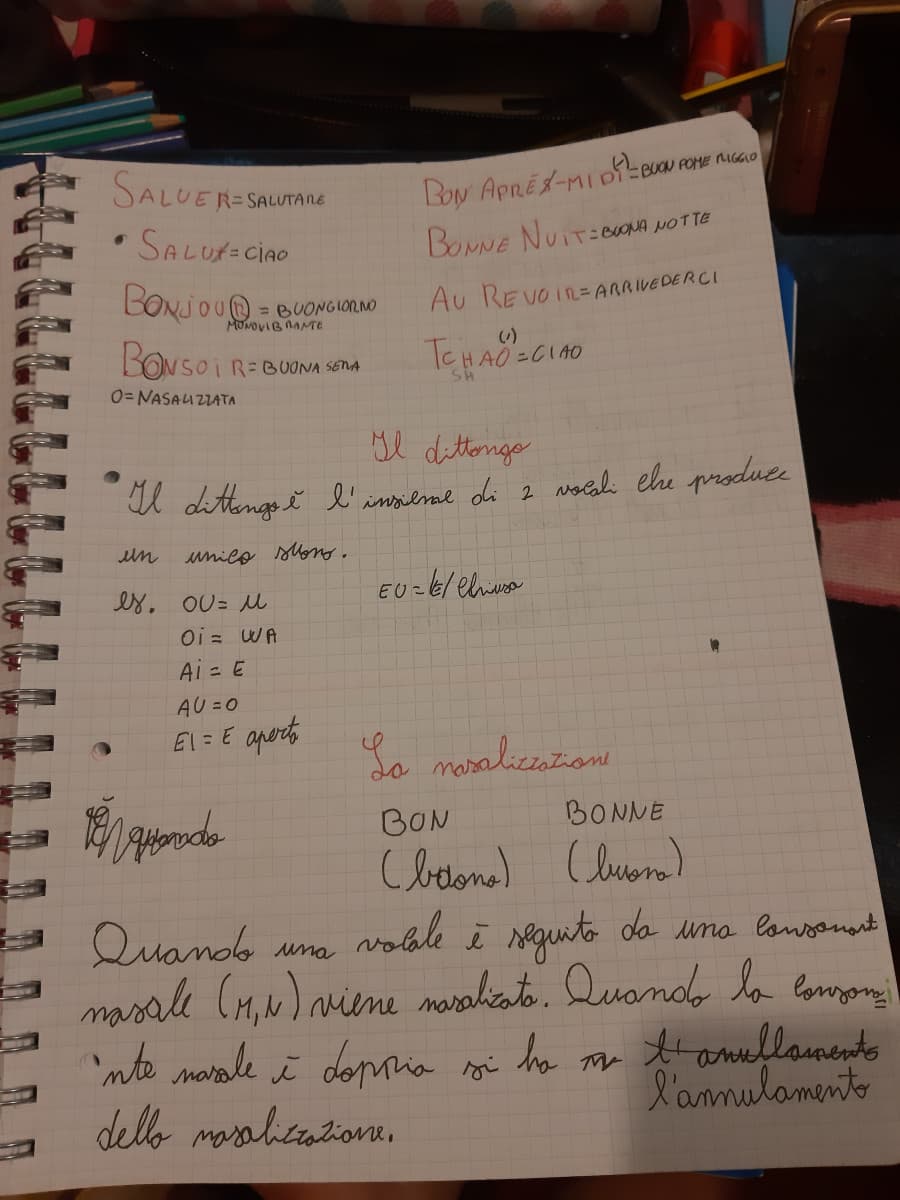 SALUER = SALUTARE
• SALUT = CIAO
BONJOUR = BUONGIORNO
MONOVIBRANTE
BONSOIR = BUONA SERA
O = NASALIZZATA
BON APRÉS-MIDI (-) = BUON POMERIGGIO
BONNE NUIT = BUONA NOTTE
AU REVOIR = ARRIVEDERCI
TCHAO (') = CIAO
SH
Il dittongo
Il dittongo è l'insieme di 2 vocali che produce
un unico suono.
es. OU = U
EU = E/chiusa
OI = WA
AI = E
AU = O
EI = E aperta
La nasalizzazione
quando
BON BONNE
(buono) (buona)
Quando una vocale è seguito da una consonant
nasale (M,N) viene nasalizata. Quando la conson
nte nasale è doppia si ha l'anullamento
l'annulamento
della nasalizzazione.